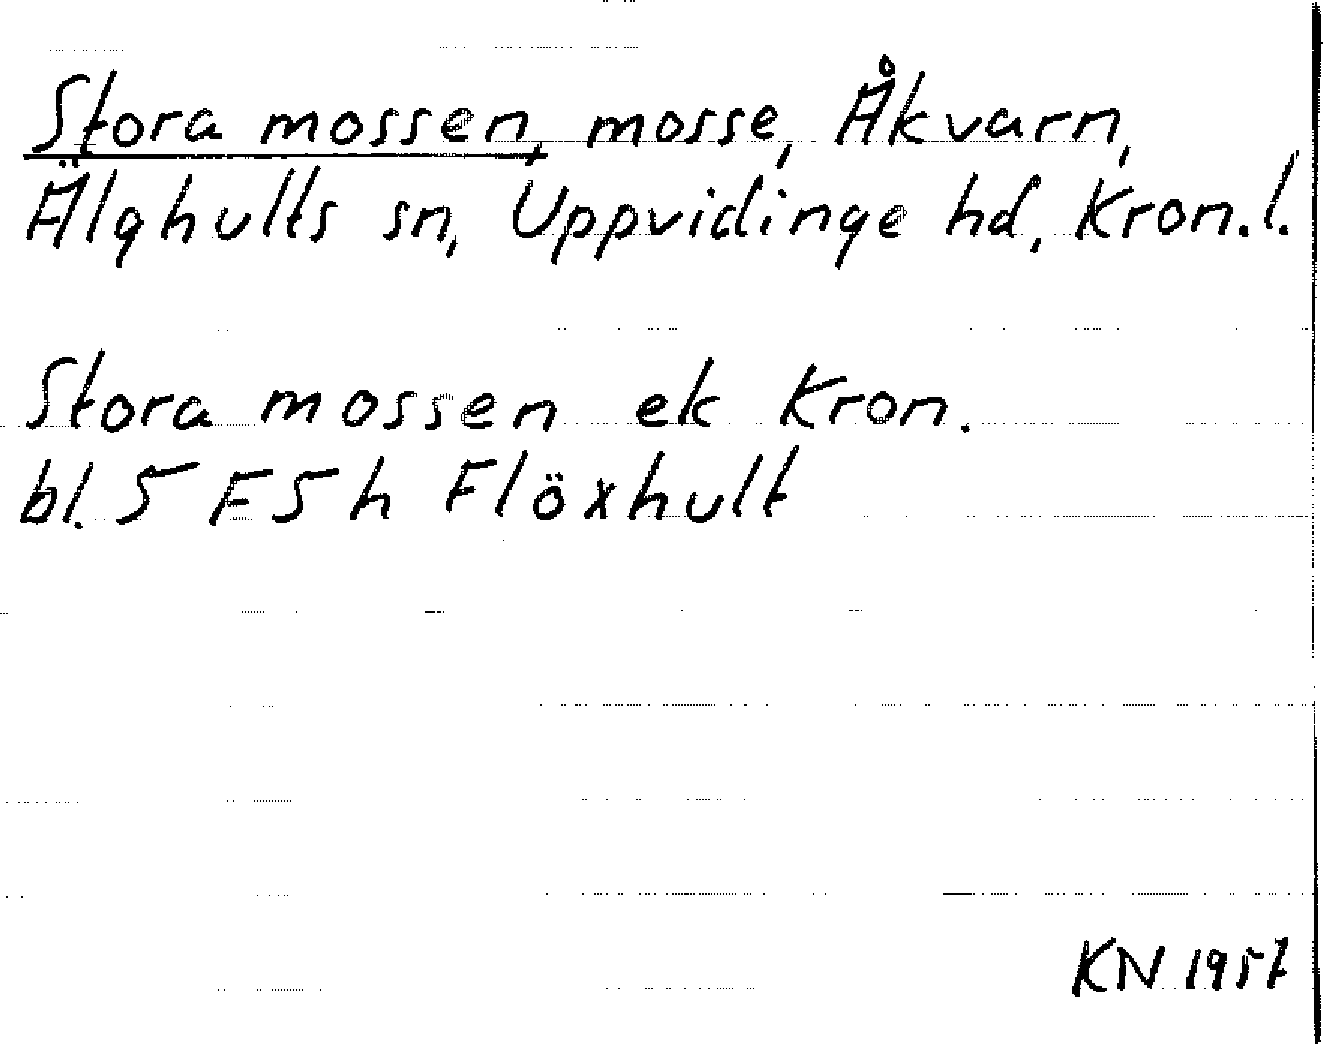 Stora mossen, mosse, Åkvarn,
Älghults sn, Uppvidinge hd, Kron.l.
Stora mossen ek Kron.
bl. 5 F 5 h Flöxhult
KN 1957